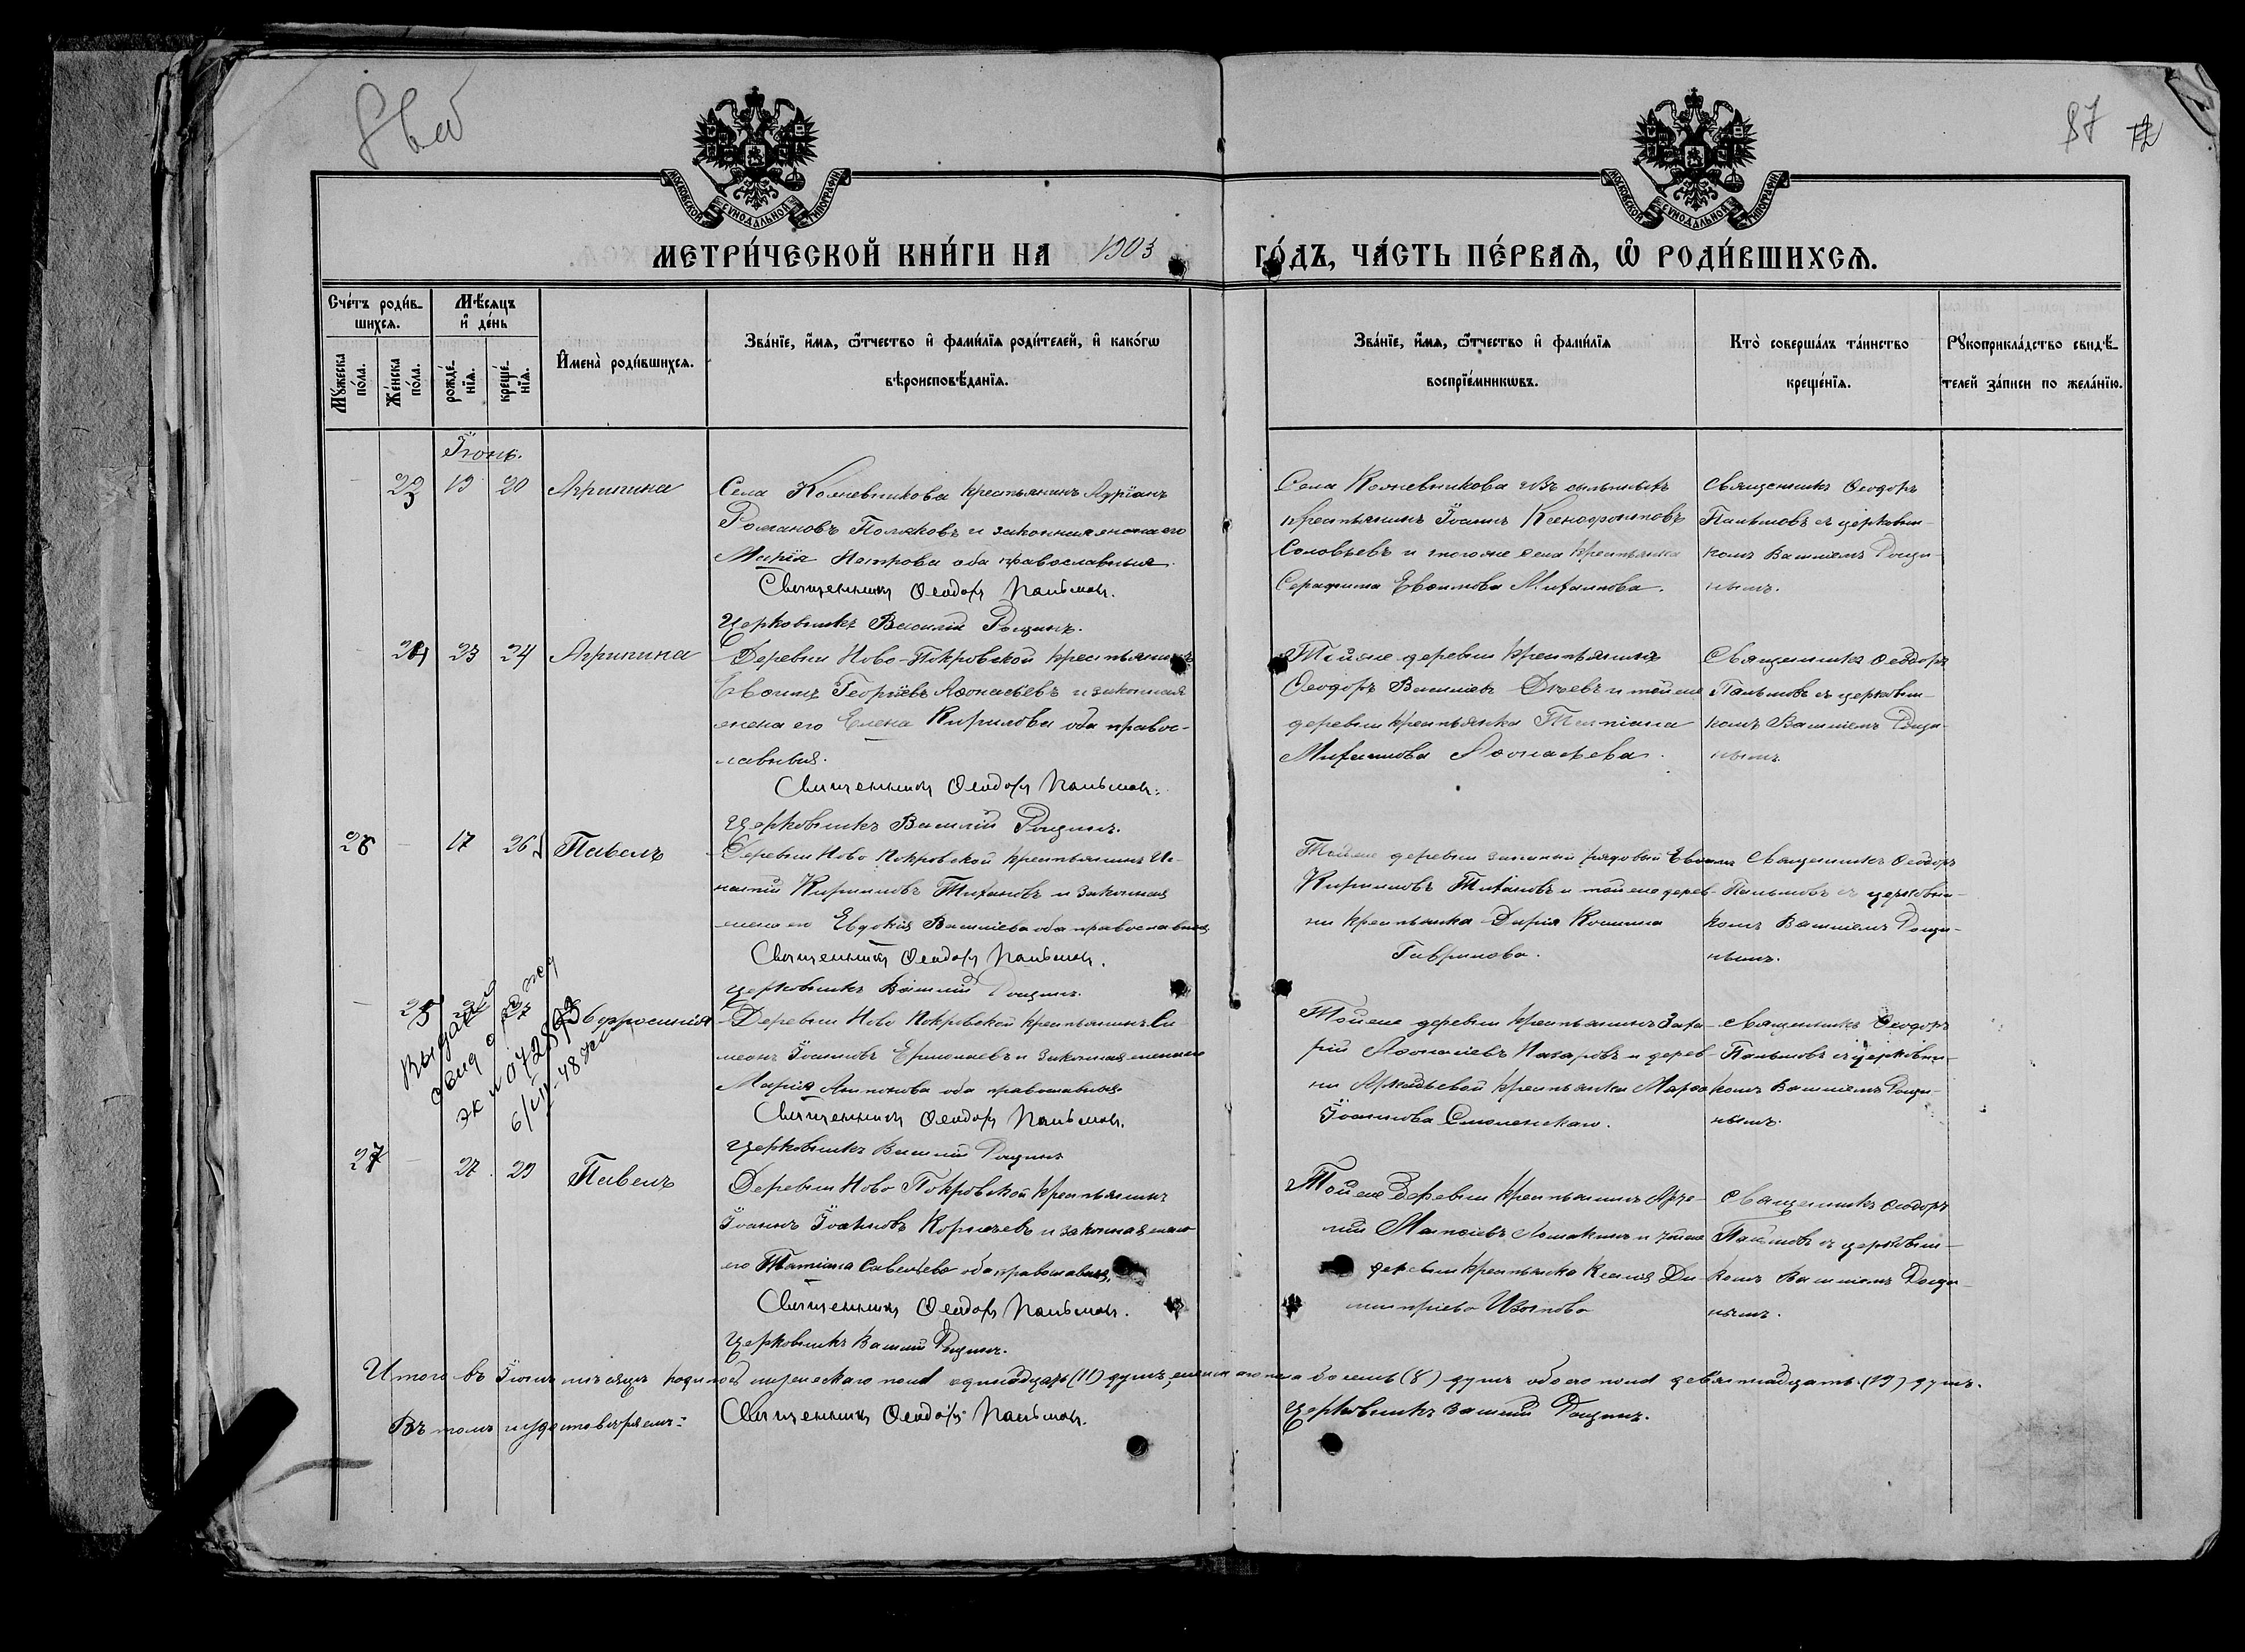 86 об
87
МОСКОВСКОЙ СѴНОДАЛЬНОЙ ТИПОГРАФІИ
МОСКОВСКОЙ СѴНОДАЛЬНОЙ ТИПОГРАФІИ
МЕТРИ́ЧЕСКОЙ КНИ́ГИ НА 1903 ГО́ДЪ, ЧА́СТЬ ПЕ́РВАѦ, Ѡ РОДИ́ВШИХСѦ.
Сче́тъ роди́в-
шихсѧ.
Мѹжеска по́ла.
Же́нска по́ла.
Мѣ́сѧцъ
и де́нь
рожде́-
нїѧ.
креще́-
нїѧ.
Имена̀ роди́вшихсѧ.
Зва́нїе, и́мѧ, ѻ́тчество и фами́лїѧ роди́телей, и како́гѡ
вѣроисповѣ́данїѧ.
Зва́нїе, и́мѧ, ѻ́тчество и фами́лїѧ
воспрїе́мникѡвъ.
Кто̀ соверша́лъ та́инство
креще́нїѧ.
Рѹкоприкла́дство свидѣ́-
телей за́писи по жела́нїю.
Іюнь.
23 19 20 Агрипина
Села Кожевникова крестьянинъ Адріанъ
Романовъ Поляковъ и законная жена его
Марія Петрова оба православные.
Священникъ Ѳеодоръ Пальмовъ.
Церковникъ Василій Рощинъ.
Села Кожевникова изъ ссыльныхъ
крестьянинъ Іоаннъ Ксенофонтовъ
Соловьевъ и тогоже села крестьянка
Серафима Евѳимова Михаилова.
Священникъ Ѳеодоръ
Пальмовъ съ церковни-
комъ Василіемъ Рощи-
нымъ.
24 23 24 Агрипина
Деревни Ново-Покровской крестьянинъ
Евѳимъ Георгіевъ Аѳонасьевъ и законная
жена его Елена Кирилова оба правос-
лавныя.
Священникъ Ѳеодоръ Пальмовъ.
Церковникъ Василій Рощинъ.
Тойже деревни крестьянинъ
Ѳеодоръ Василіевъ и тойже
деревни крестьянка Татіана
Михаилова Аѳонасьева.
Священникъ Ѳеодоръ
Пальмовъ съ церковни-
комъ Василіемъ Рощи-
нымъ.
26 17 26 Павелъ
Деревни Ново Покровской крестьянинъ Иг-
натій Кириловъ Тихановъ и законная
жена его Евдокія Василіева оба православныя
Священникъ Ѳеодоръ Пальмовъ.
Церковникъ Василій Рощинъ.
Тойже деревни запасный рядовый Евѳимъ
Кириловъ Тихановъ и тойже дерев-
ни крестьянка Дарія Козмина
Гаврилова.
Священникъ Ѳеодоръ
Пальмовъ съ церковни-
комъ Василіемъ Рощи-
нымъ.
25 27 Евфросинія
Выдан
свид о рожд
эк № 072893
6/VII-48
Деревни Ново Покровской крестьянинъ Си-
меонъ Іоанновъ Ермолаевъ и законная жена его
Марія Антонова оба православныя
Священникъ Ѳеодоръ Пальмовъ.
Церковникъ Василій Рощинъ
Тойже деревни крестьянинъ Заха-
рій Аѳонасіевъ Назаровъ и дерев-
ни Аркадьевой крестьянка Марѳа
Іоаннова Смоленская.
Священникъ Ѳеодоръ
Пальмовъ съ церковни-
комъ Василіемъ Рощи-
нымъ.
27 27 29 Павелъ
Деревни Ново Покровской крестьянинъ
Іоаннъ Іоанновъ Корнѣевъ и законная жена
его Татіана Савельева оба православныя.
Священникъ Ѳеодоръ Пальмовъ.
Церковникъ Василій Рощинъ.
Тойже деревни крестьянинъ Арте-
мій Матѳіевъ Ломакинъ и тойже
деревни крестьянка Ксенія Ди-
митріева Изотова
Священникъ Ѳеодоръ
Пальмовъ съ церковни-
комъ Василіемъ Рощи-
нымъ.
Итого въ Іюнѣ мѣсяцѣ родилось мужескаго пола одинадцать (11) душъ, женскаго пола восемь (8) душъ обоего пола девятнадцать (19) душъ.
Въ томъ и удостовѣряемъ: Священникъ Ѳеодоръ Пальмовъ. Церковникъ Василій Рощинъ.